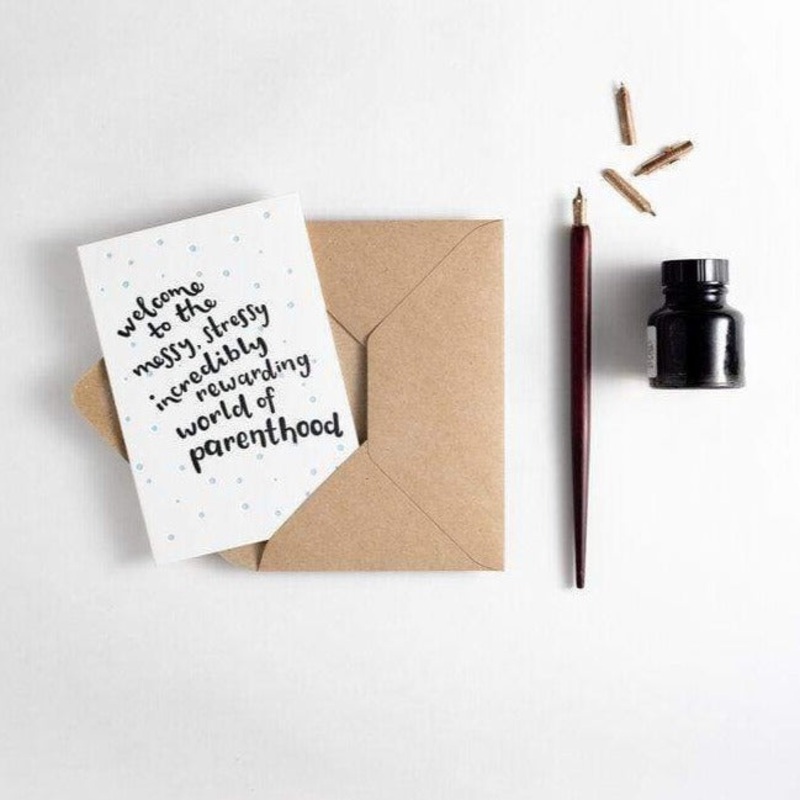 welcome
to the
messy, stressy
incredibly
rewarding
world of
parenthood